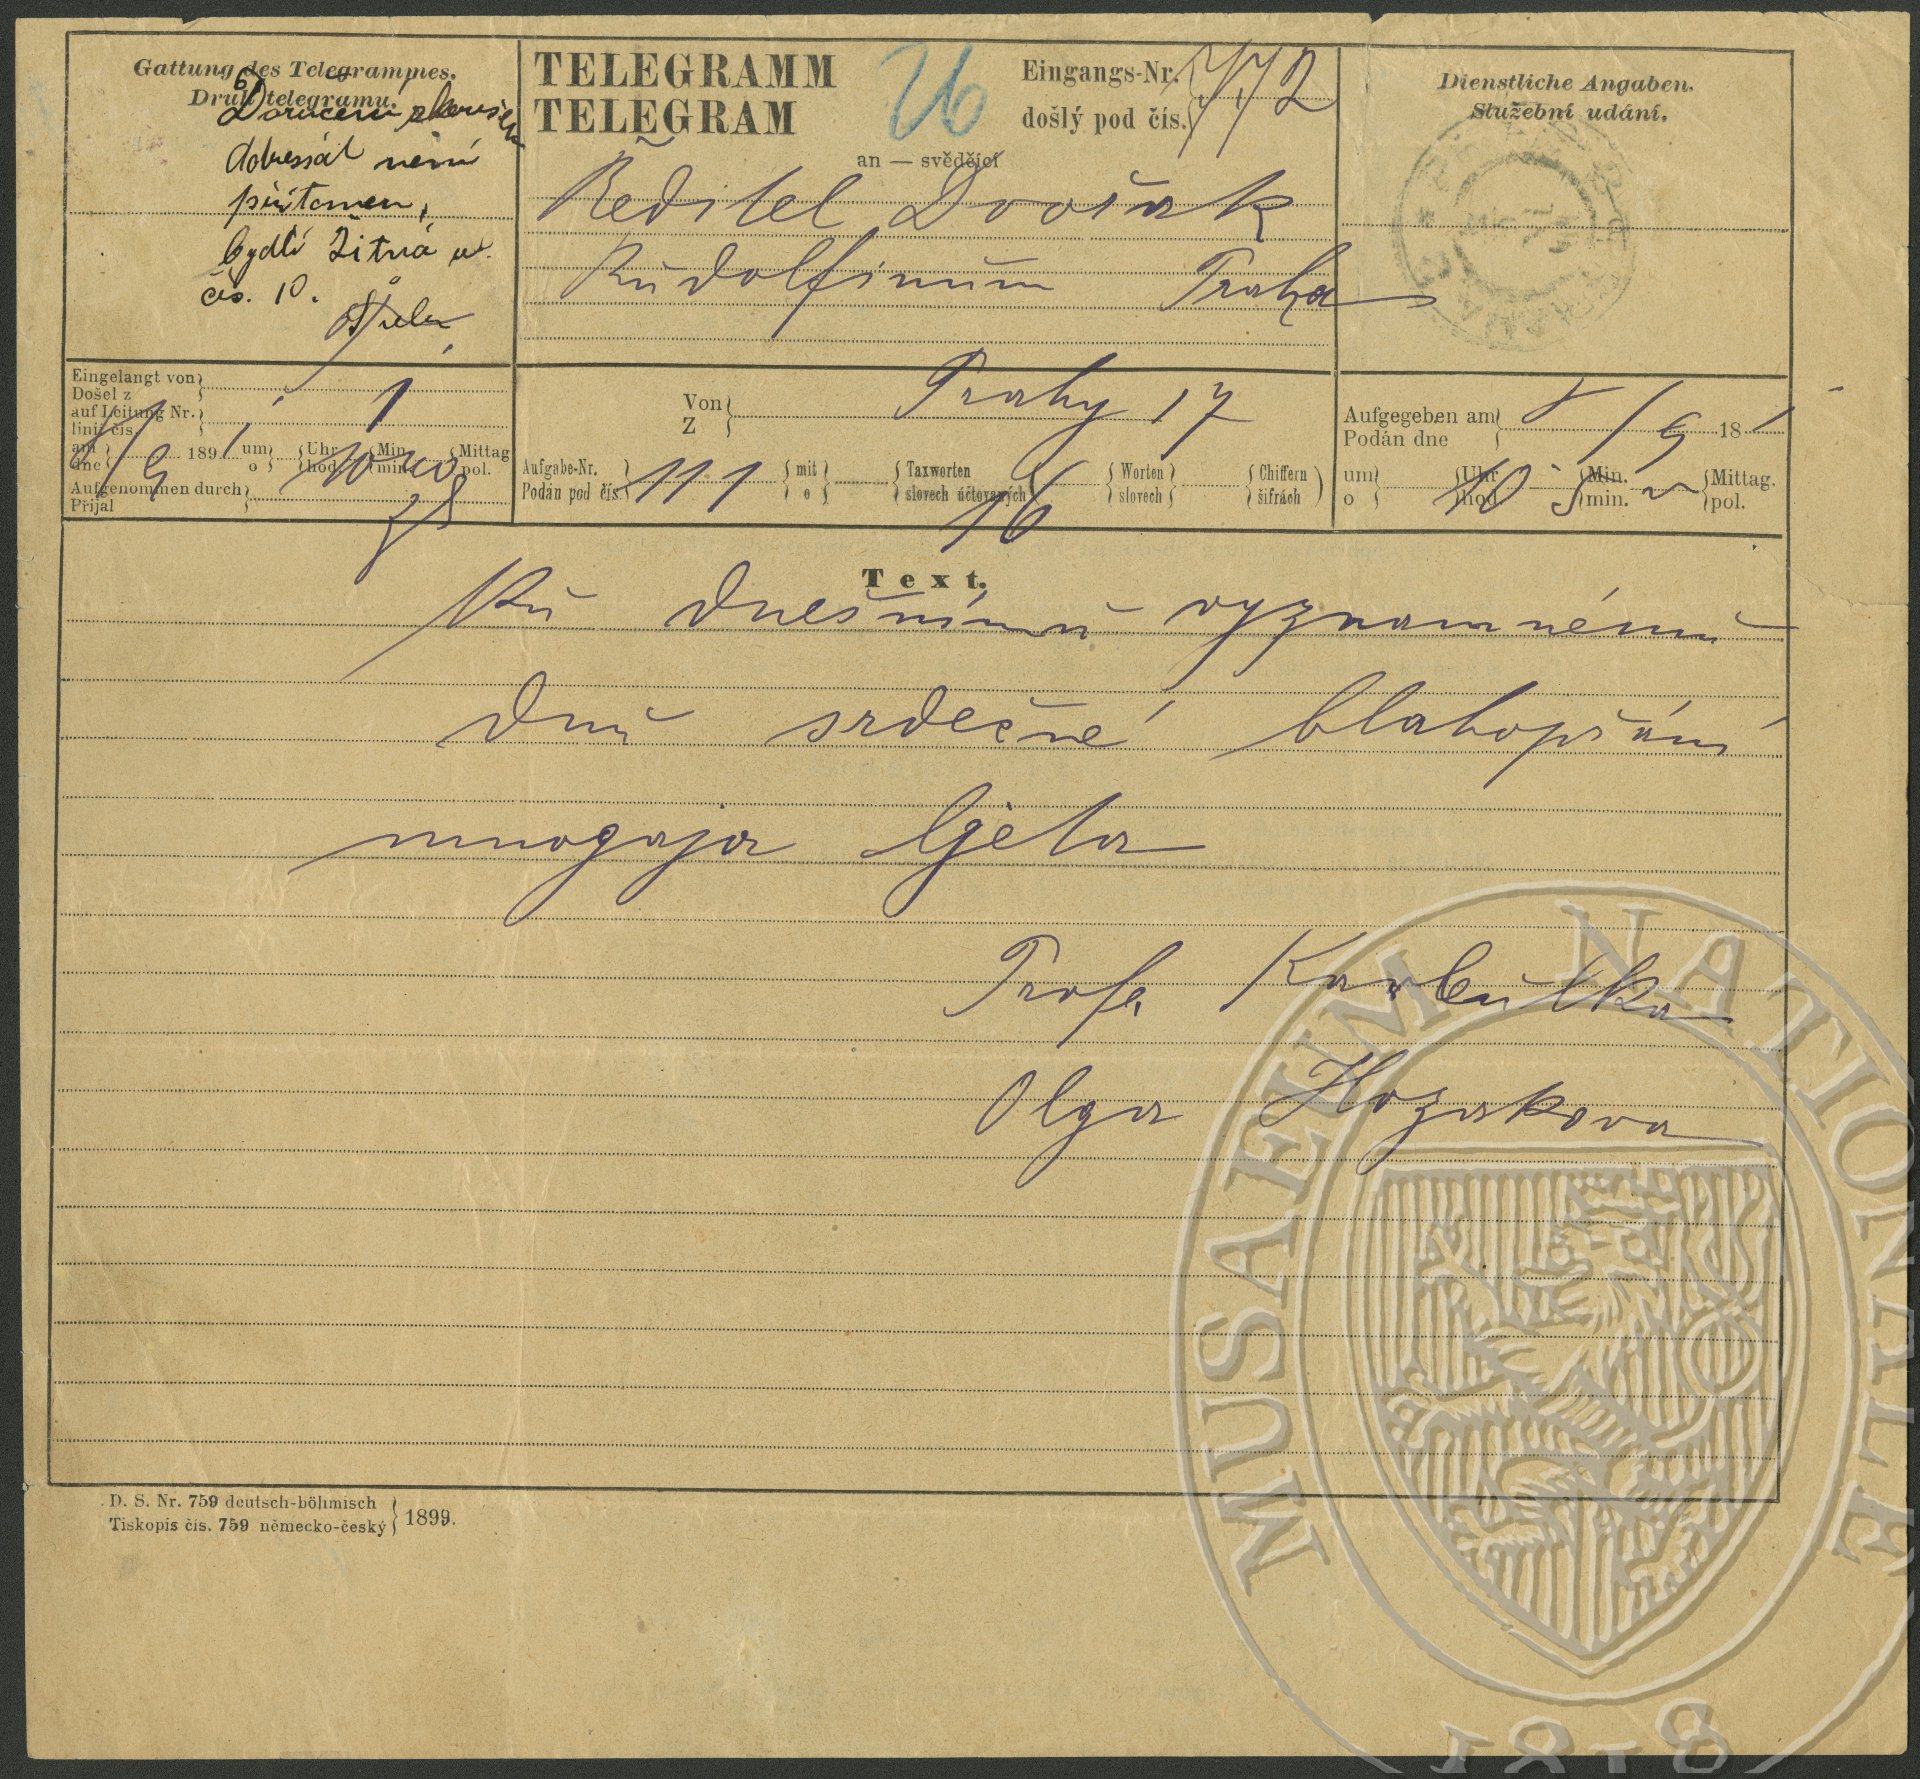 Gattung des Telegrammes.
Druh telegramu.
Doručení zkoušen
Adressát není
přítomen,
bydlí Žitná ul.
čís. 10.
TELEGRAMM
TELEGRAM
26
Eingangs-Nr.
došlý pod čís.
772
an — svědějící
Ředitel Dvořák
Rudolfinum Praha
Dienstliche Angaben.
Služební udání.
Eingelangt von
Došel z
auf Leitung Nr.
linií čís.
1
am
dne
189
um
o
Uhr
hod.
Min.
min.
Mittag
pol.
Aufgenommen durch
Přijal
Von
Z
Prahy 17
Aufgabe-Nr.
Podán pod čís.
111
mit
o
Taxworten
slovech účtovaných
16
Worten
slovech
Chiffern
šifrách
Aufgegeben am
Podán dne
8/9 18 1
um
o
10
Uhr
hod.
5
Min.
min.
Mittag.
pol.
Text.
Ku dnešnímu významnému
dnu srdečné blahopřání
mnogaja ljeta
Profe Karbulka
Olga Hozakova
D. S. Nr. 759 deutsch-böhmisch
Tiskopis čís. 759 německo-český
1899.
MUSAEUM NATIONALE
1818